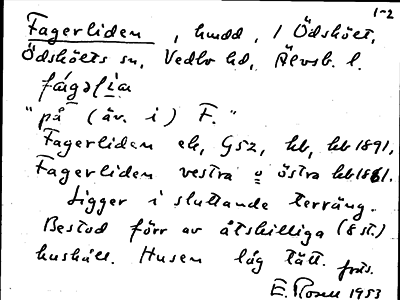 1-2
Fagerliden, hmdd, i Ödsköet,
Ödsköets sn, Vedbo hd, Älvsb. l.
fágəlìa
"på (äv. i) F."
Fagerliden ek, Gsz, hb, hb 1891,
Fagerliden vestra o östra hb 1861.
Ligger i sluttande terräng.
Bestod förr av åtskilliga (8 st.)
hushåll. Husen låg tätt.
forts.
E. Rosell 1953